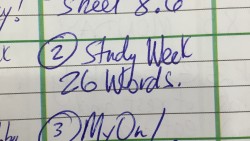 Sheet 8.6
② Study Week
26 Words.
③ MyOn/